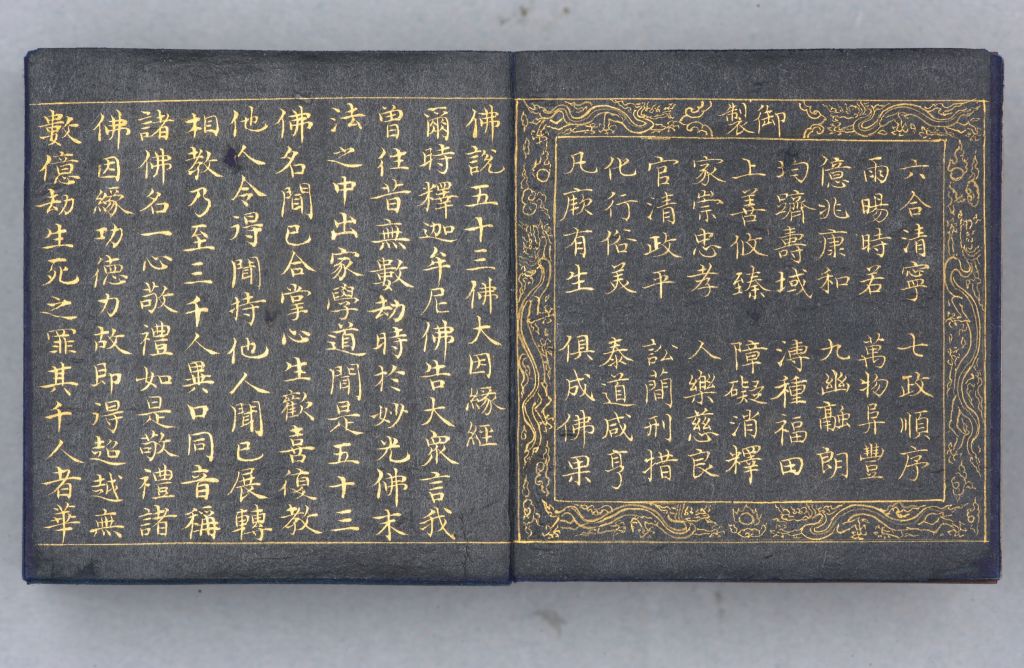 御製
六合清寧 七政順序
雨暘時若 萬物阜豐
億兆康和 九幽融朗
均躋壽域 溥種福田
上善攸臻 障礙消釋
家崇忠孝 人樂慈良
官清政平 訟蕳刑措
化行俗美 泰道咸亨
凡厥有生 俱成佛果
佛說五十三佛大因緣經
爾時釋迦牟尼佛告大衆言我
曾往昔無數劫時於妙光佛末
法之中出家學道聞是五十三
佛名聞已合掌心生歡喜復教
他人令得聞持他人聞已展轉
相教乃至三千人異口同音稱
諸佛名一心敬禮如是敬禮諸
佛因緣功德力故即得超越無
數億劫生死之罪其千人者華